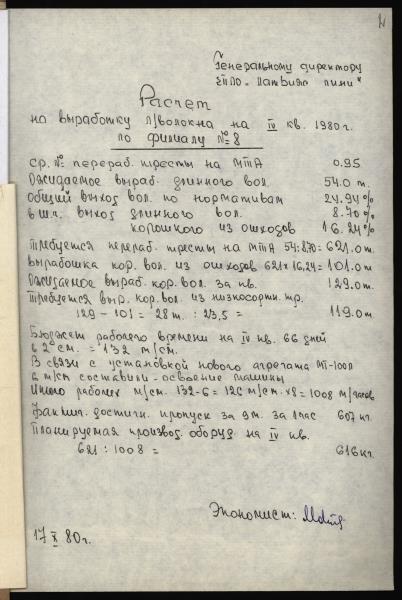 Генеральному директору
ЭППО "Латвияс лини"
Расчет
на выработку л/волокна на IV кв. 1980 г.
по филиалу №8
ср. № перераб. тресты на МТА 0.95
Ожидаемое выраб. длинного вол. 54.0 т.
Общий выход вол. по нормативам 24.94%
в т.ч. выход длинного вол. 8.70%
короткого из отходов 16.24%
Требуется перераб. тресты на МТА 54:8.70 = 621.0 т
Выработка кор. вол. из отходов 621 x 16,24 = 101.0 т
Ожидаемое выраб. кор. вол. за кв. 129.0 т
Требуется выр. кор. вол. из низкосортн. тр.
129 - 101 = 28 т. : 23,5 = 119.0 т
Бюджет рабочего времени на IV кв. 66 дней
в 2 см. = 132 м/см.
В связи с установкой нового агрегата МТ-100Л
6 м/см составили - освоение машины
Итого рабочих м/см. 132-6 = 126 м/см. x 8 = 1008 м/часов
Фактич. достигн. пропуск за 9 м. за 1 час 607 кг.
Планируемая произвоg. оборуд. на IV кв.
621 : 1008 = 616 кг.
Экономист:
17 X 80 г.